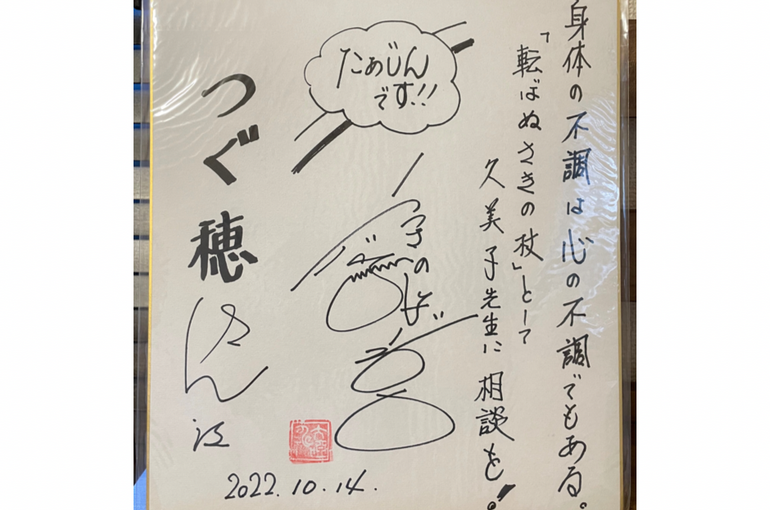 身体の不調は心の不調でもある。
「転ばぬさきの杖」として
久美子先生に相談を!
たぁじん
です!!
つぐ穂
さん
江
2022.10.14.